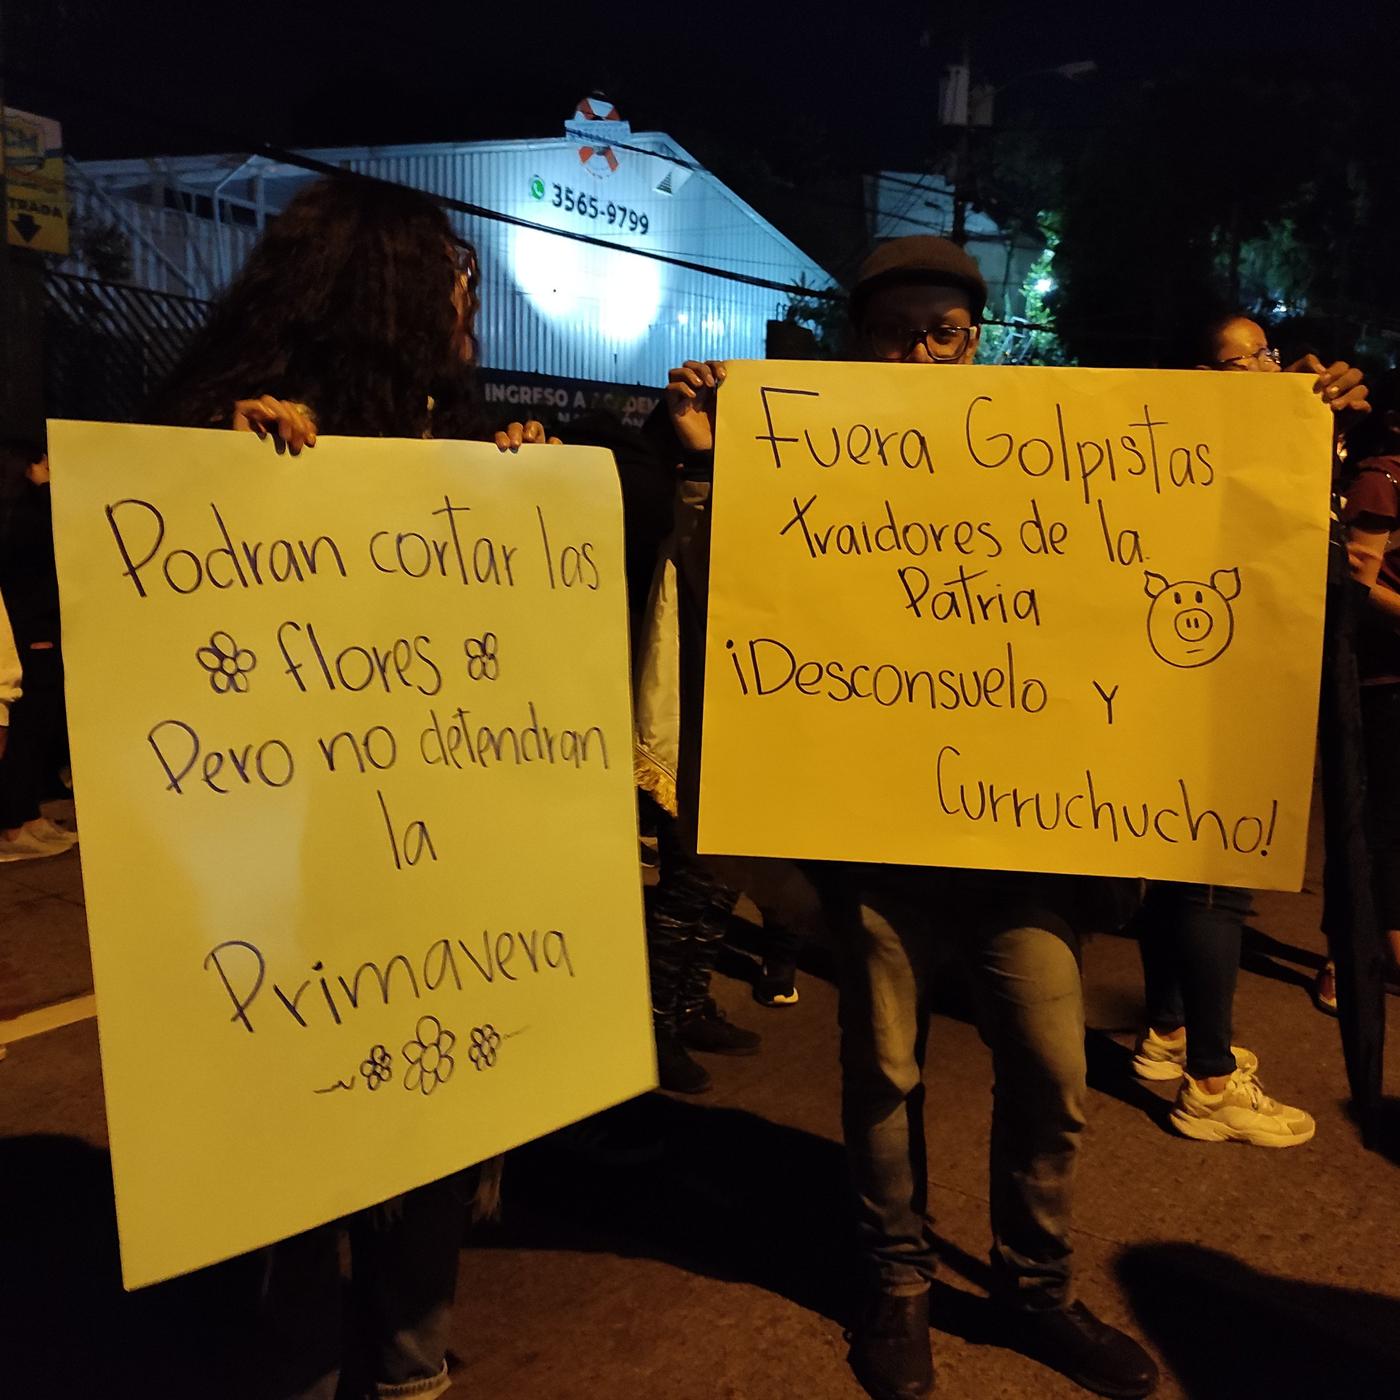 3565-9799
TRADA
INGRESO A
Podran cortar las
flores
Pero no detendran
la
Primavera
Fuera Golpistas
traidores de la
Patria
¡Desconsuelo Y
Curruchucho!